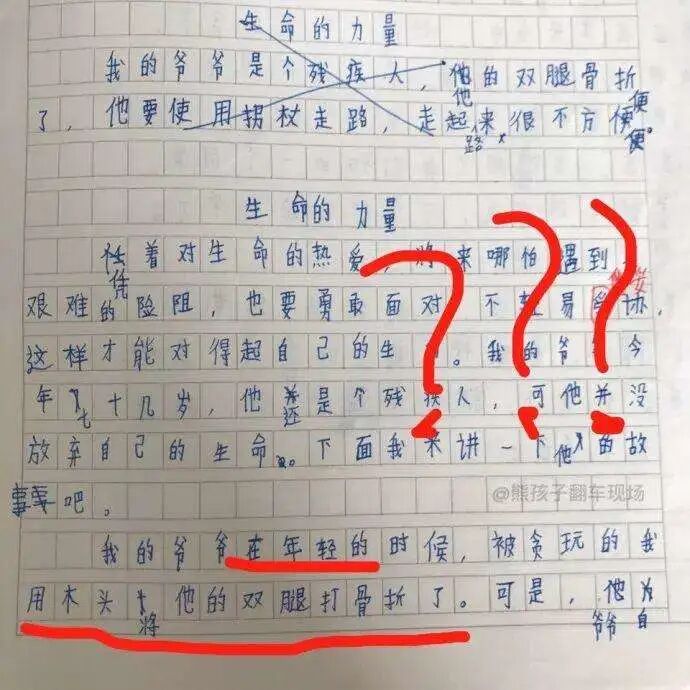 生命的力量
我的爷爷是个残疾人，他的双腿骨折
了，他要使用拐杖走路，走起路很不方便。
生命的力量
凭着对生命的热爱，将来哪怕遇到
艰难的险阻，也要勇敢面对，不轻易妥协，
这样才能对得起自己的生。我的爷今
年七十几岁，他还是个残疾人，可他并没
放弃自己的生命。下面我来讲一下他的故
事吧。
@熊孩子翻车现场
我的爷爷在年轻的时候，被贪玩的我
用木头将他的双腿打骨折了。可是，爷爷自